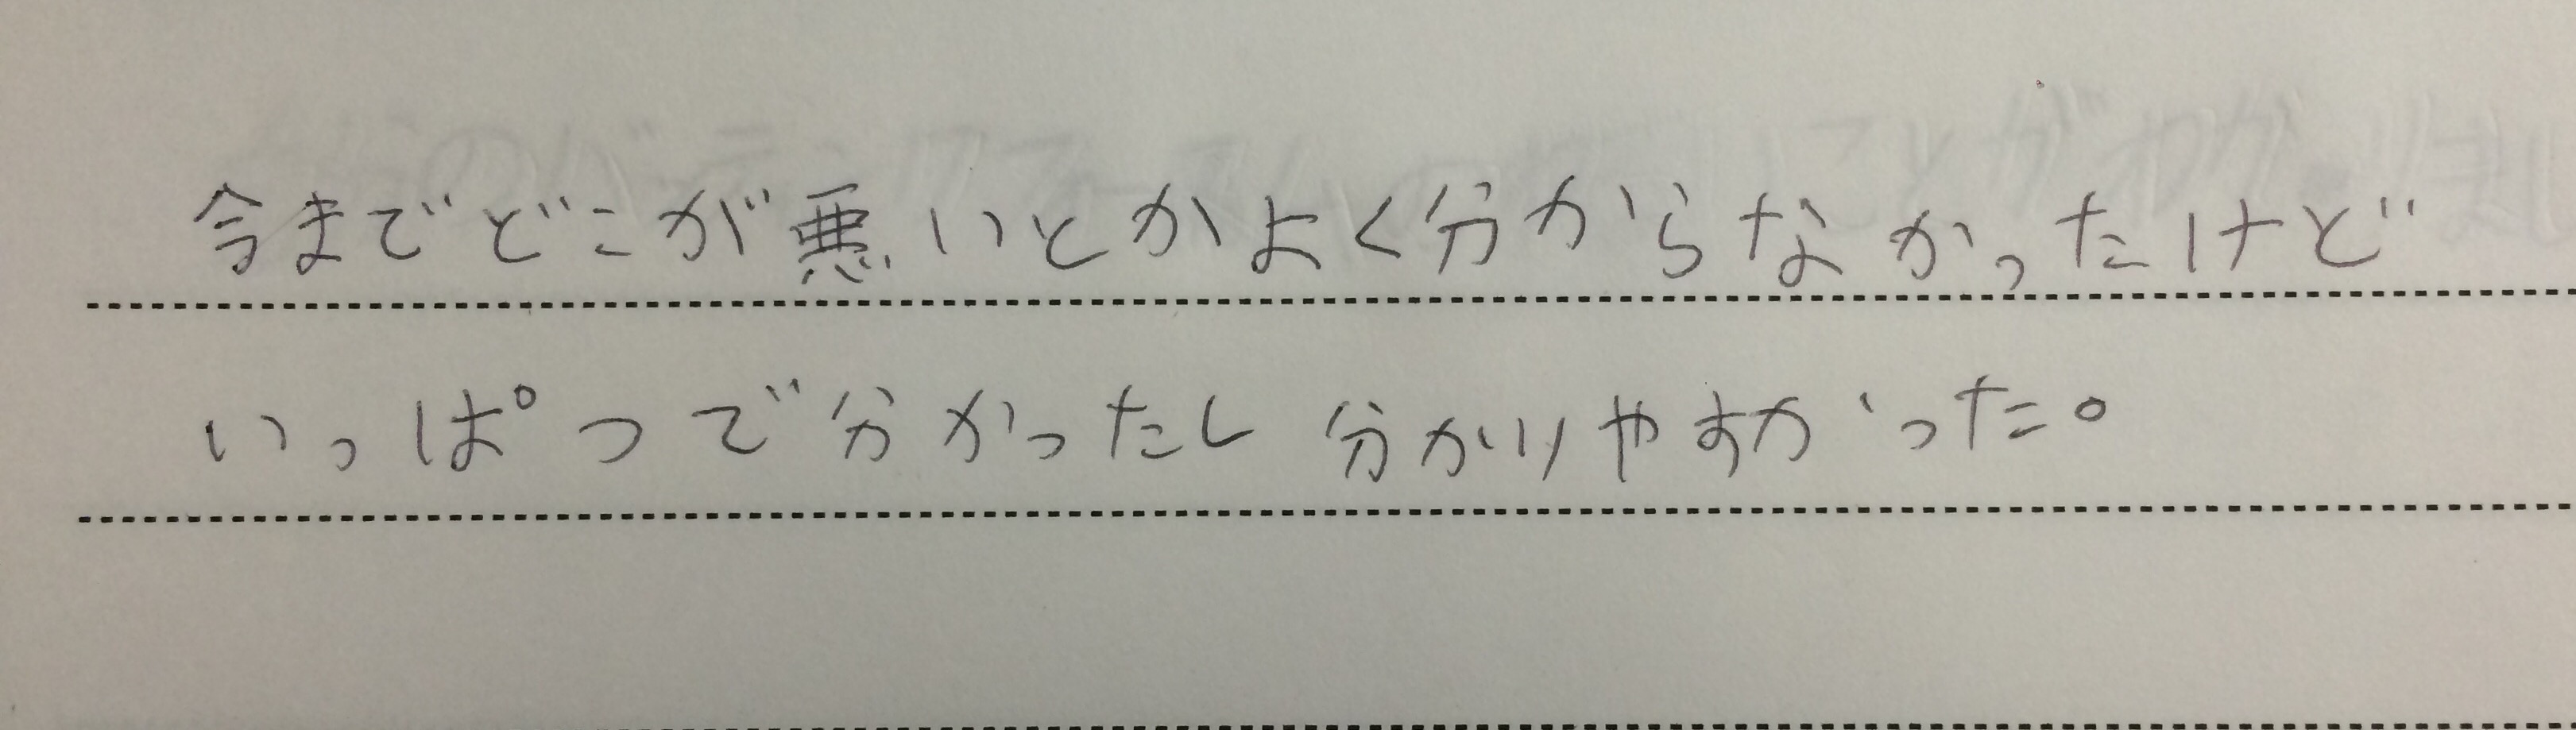 今までどこが悪いとかよく分からなかったけど
いっぱつで分かったし 分かりやすかった。